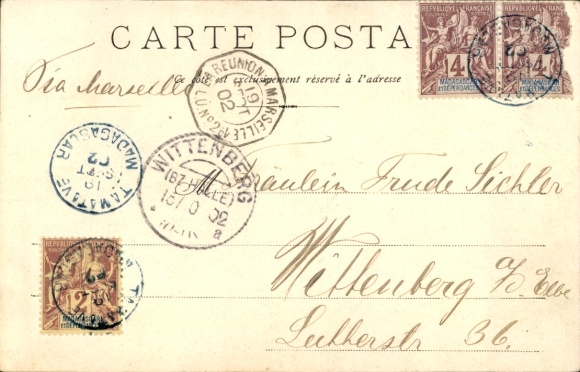 CARTE POSTA
Ce côté est exclusivement réservé à l'adresse
Via Marseille
RÉPUBLIQUE FRANÇAISE
4
MADAGASCAR
ET DÉPENDANCES
RÉPUBLIQUE FRANÇAISE
4
MADAGASCAR
ET DÉPENDANCES
REUNION A MARSEILLE
L.U.N°2
19
SEPT
02
TAMATAVE
19
SEPT
02
MADAGASCAR
WITTENBERG
(BZ. HALLE)
02
Fräulein Trude Sichler
Wittenberg a/ Elbe
Lutherstr 36.
RÉPUBLIQUE FRANÇAISE
2
MADAGASCAR
ET DÉPENDANCES